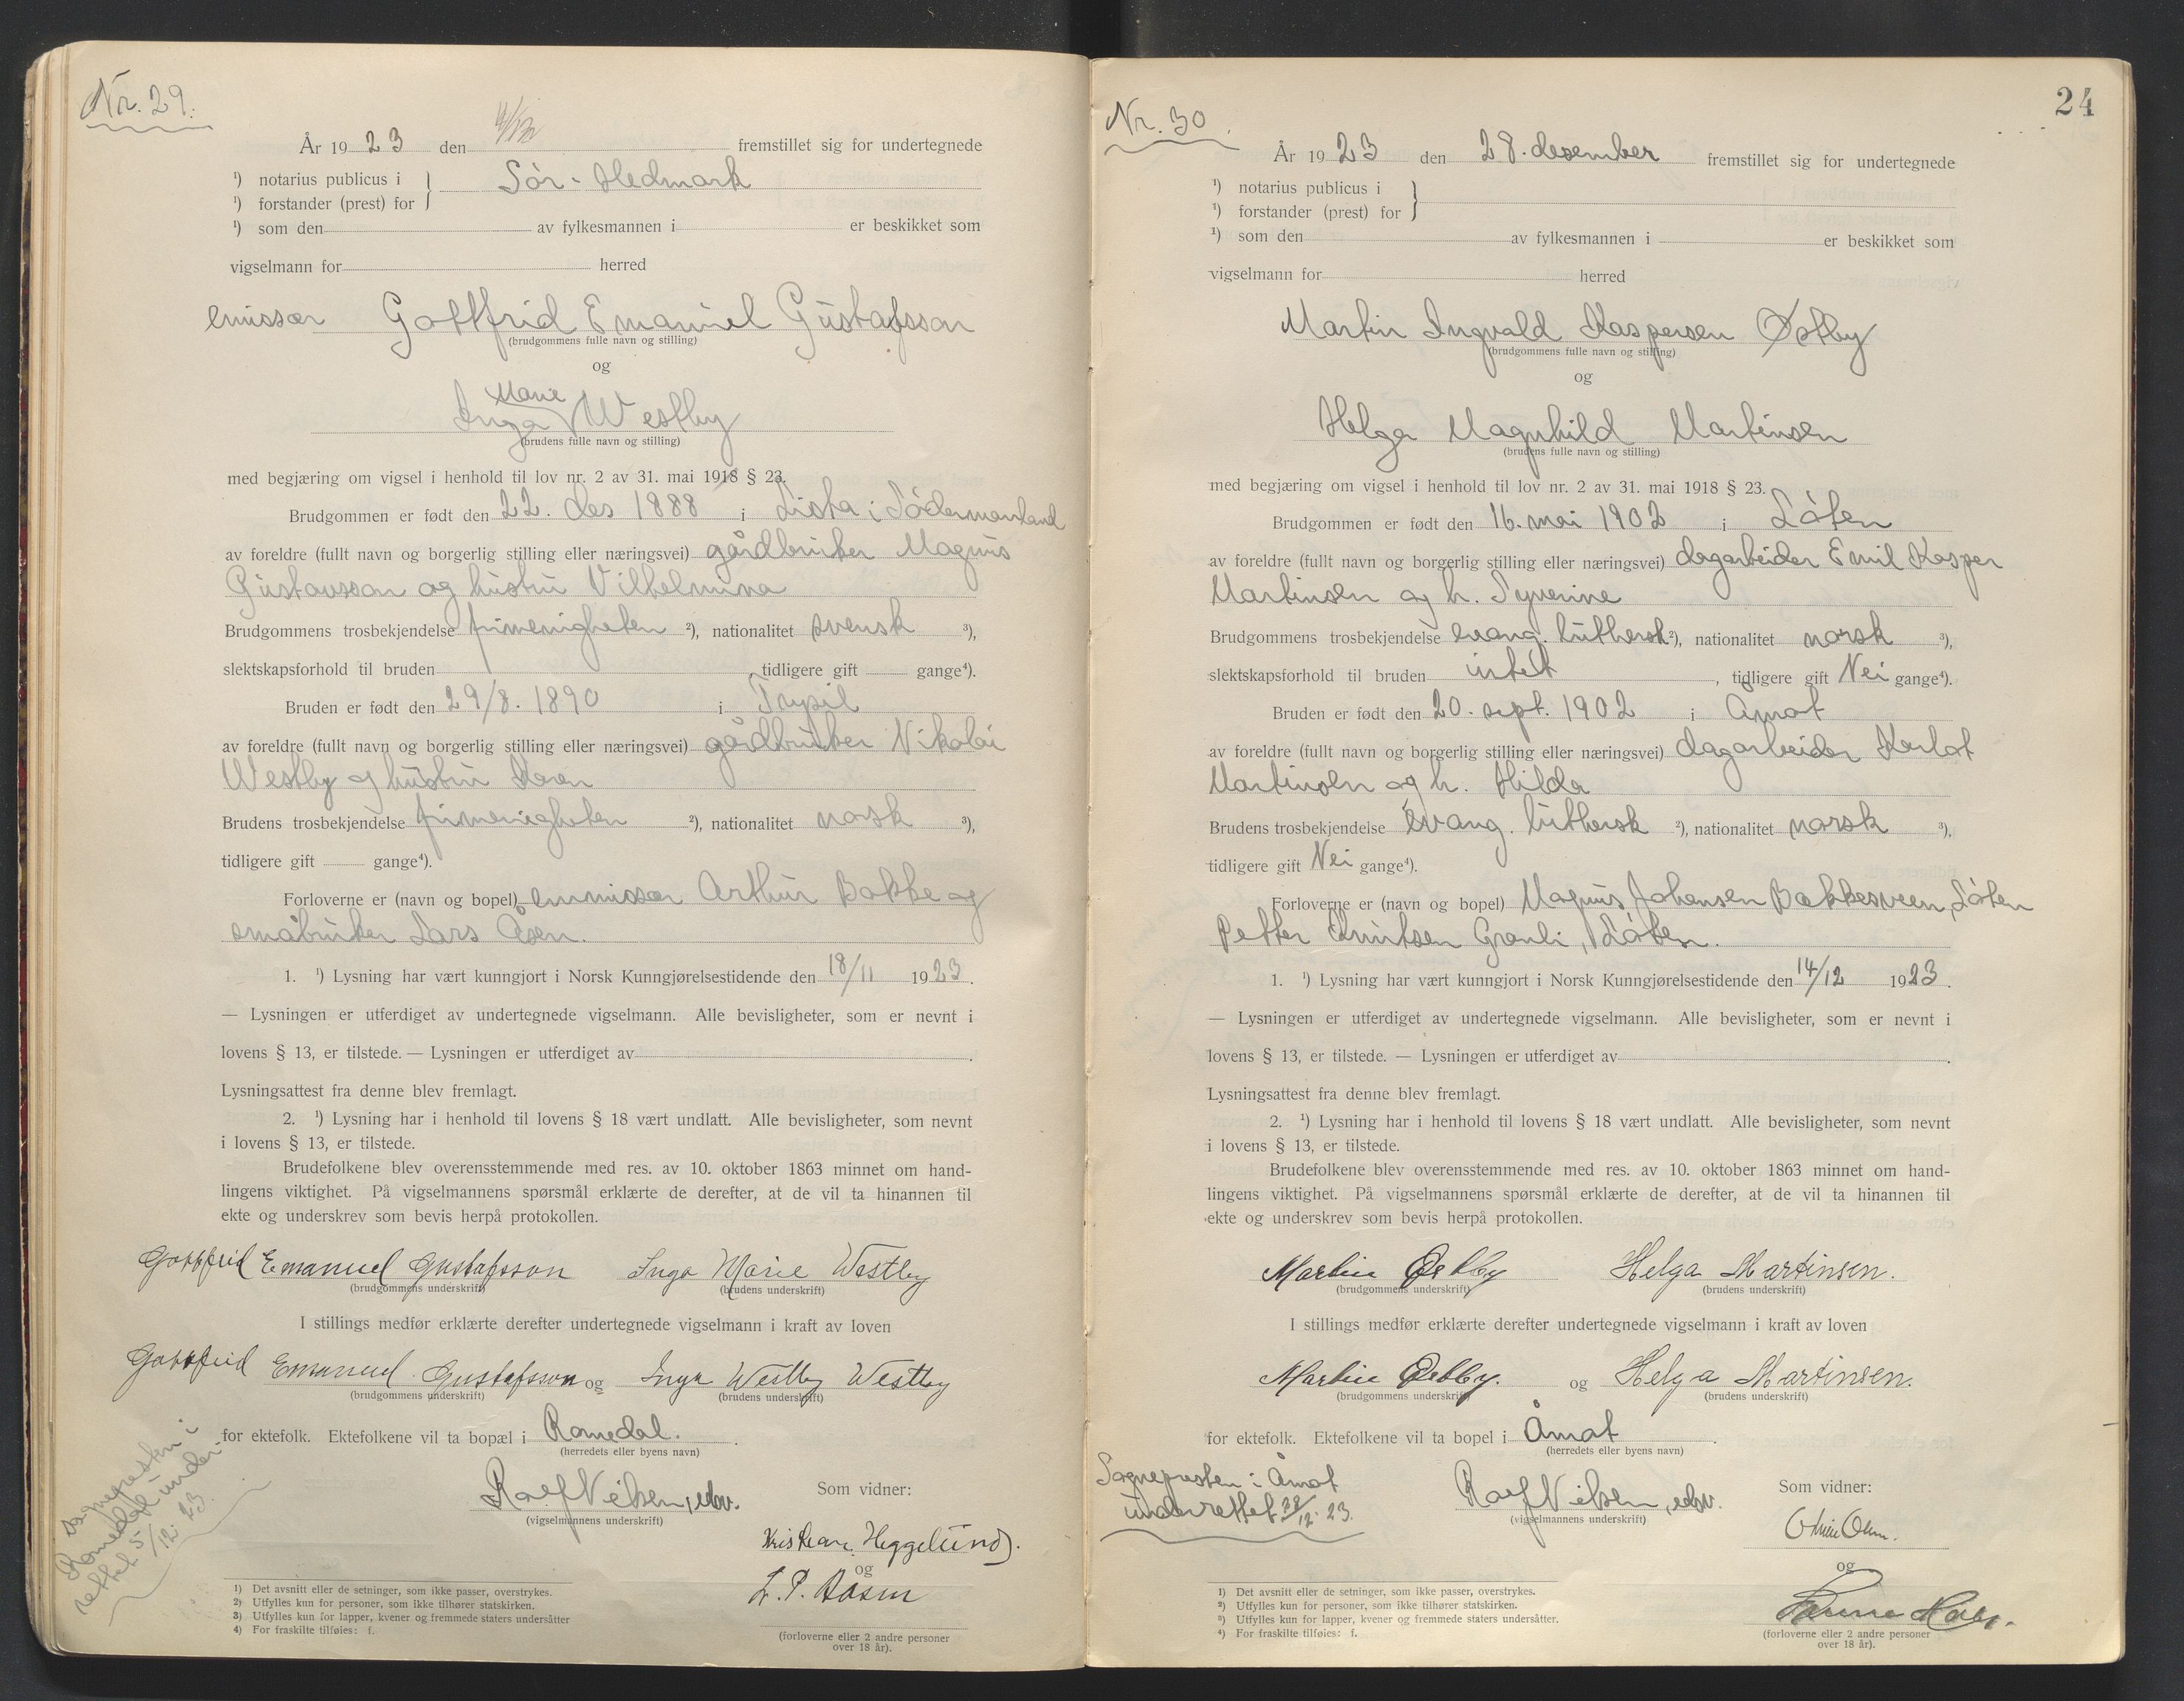 Nr. 29.
År 1923 den 4/12 fremstillet sig for undertegnede
¹) notarius publicus i } Sör-Hedmark
¹) forstander (prest) for
¹) som den av fylkesmannen i er beskikket som
vigselmann for herred
emissær Gottfrid Emanuel Gustafsson
(brudgommens fulle navn og stilling)
og
Marie
Inga Westby
(brudens fulle navn og stilling)
med begjæring om vigsel i henhold til lov nr. 2 av 31. mai 1918 § 23.
Brudgommen er født den 22. des 1888 i Lista i Södermanland
av foreldre (fullt navn og borgerlig stilling eller næringsvei) gårdbruker Magnus
Gustavsson og hustru Vilhelmina
Brudgommens trosbekjendelse frimenigheten ²), nationalitet svensk ³),
slektskapsforhold til bruden , tidligere gift gange⁴).
Bruden er født den 29/8. 1890 i Trysil
av foreldre (fullt navn og borgerlig stilling eller næringsvei) gårdbruker Nikolai
Westby og hustru Karen
Brudens trosbekjendelse frimenigheten ²), nationalitet norsk ³),
tidligere gift gange⁴).
Forloverne er (navn og bopel) emmissær Arthur Bakke og
småbruker Lars Åsen.
1. ¹) Lysning har vært kunngjort i Norsk Kunngjørelsestidende den 18/11 1923.
— Lysningen er utferdiget av undertegnede vigselmann. Alle bevisligheter, som er nevnt i
lovens § 13, er tilstede. — Lysningen er utferdiget av .
Lysningsattest fra denne blev fremlagt.
2. ¹) Lysning har i henhold til lovens § 18 vært undlatt. Alle bevisligheter, som nevnt
i lovens § 13, er tilstede.
Brudefolkene blev overensstemmende med res. av 10. oktober 1863 minnet om hand-
lingens viktighet. På vigselmannens spørsmål erklærte de derefter, at de vil ta hinannen til
ekte og underskrev som bevis herpå protokollen.
Gottfrid Emanuel Gustafsson Inga Marie Westby
(brudgommens underskrift) (brudens underskrift)
I stillings medfør erklærte derefter undertegnede vigselmann i kraft av loven
Gottfrid Emanuel Gustafsson og Inga Westby Westby
(brudgommens underskrift) (brudens underskrift)
for ektefolk. Ektefolkene vil ta bopæl i Romedal.
(herredets eller byens navn)
Sognepresten i
Romedal under-
rettet 5/12. 23.
Rolf Nilsen, edv.
(vigselmannens underskrift)
Som vidner:
Kristian Heggelund.
og
L. P. Aasen
(forloverne eller 2 andre personer
over 18 år).
1) Det avsnitt eller de setninger, som ikke passer, overstrykes.
2) Utfylles kun for personer, som ikke tilhører statskirken.
3) Utfylles kun for lapper, kvener og fremmede staters undersåtter
4) For fraskilte tilføies: f.
24
Nr. 30.
År 1923 den 28. desember fremstillet sig for undertegnede
¹) notarius publicus i }
¹) forstander (prest) for
¹) som den av fylkesmannen i er beskikket som
vigselmann for herred
Martin Ingvald Kaspersen Østby
(brudgommens fulle navn og stilling)
og
Helga Magnhild Martinsen
(brudens fulle navn og stilling)
med begjæring om vigsel i henhold til lov nr. 2 av 31. mai 1918 § 23.
Brudgommen er født den 16. mai 1902 i Löten
av foreldre (fullt navn og borgerlig stilling eller næringsvei) dagarbeider Emil Kasper
Martinsen og h. Syverine
Brudgommens trosbekjendelse evang. luthersk ²), nationalitet norsk ³),
slektskapsforhold til bruden intet , tidligere gift Nei gange⁴).
Bruden er født den 20. sept. 1902 i Åmot
av foreldre (fullt navn og borgerlig stilling eller næringsvei) dagarbeider Karlot
Martinsen og h. Hilda
Brudens trosbekjendelse evang. luthersk ²), nationalitet norsk ³),
tidligere gift Nei gange⁴).
Forloverne er (navn og bopel) Magnus Johansen Bakkesveen, Löten
Petter Knutsen Granli, Löten.
1. ¹) Lysning har vært kunngjort i Norsk Kunngjørelsestidende den 14/12 1923.
— Lysningen er utferdiget av undertegnede vigselmann. Alle bevisligheter, som er nevnt i
lovens § 13, er tilstede. — Lysningen er utferdiget av .
Lysningsattest fra denne blev fremlagt.
2. ¹) Lysning har i henhold til lovens § 18 vært undlatt. Alle bevisligheter, som nevnt
i lovens § 13, er tilstede.
Brudefolkene blev overensstemmende med res. av 10. oktober 1863 minnet om hand-
lingens viktighet. På vigselmannens spørsmål erklærte de derefter, at de vil ta hinannen til
ekte og underskrev som bevis herpå protokollen.
Martin Østby Helga Martinsen.
(brudgommens underskrift) (brudens underskrift)
I stillings medfør erklærte derefter undertegnede vigselmann i kraft av loven
Martin Østby. og Helga Martinsen.
(brudgommens underskrift) (brudens underskrift)
for ektefolk. Ektefolkene vil ta bopel i Åmot .
(herredets eller byens navn)
Sognepresten i Åmot
underrettet 28/12. 23.
Rolf Nilsen, edv.
(vigselmannens underskrift)
Som vidner:
og
(forloverne eller 2 andre personer
over 18 år).
1) Det avsnitt eller de setninger, som ikke passer, overstrykes.
2) Utfylles kun for personer, som ikke tilhører statskirken.
3) Utfylles kun for lapper, kvener og fremmede staters undersåtter.
4) For fraskilte tilføies: f.